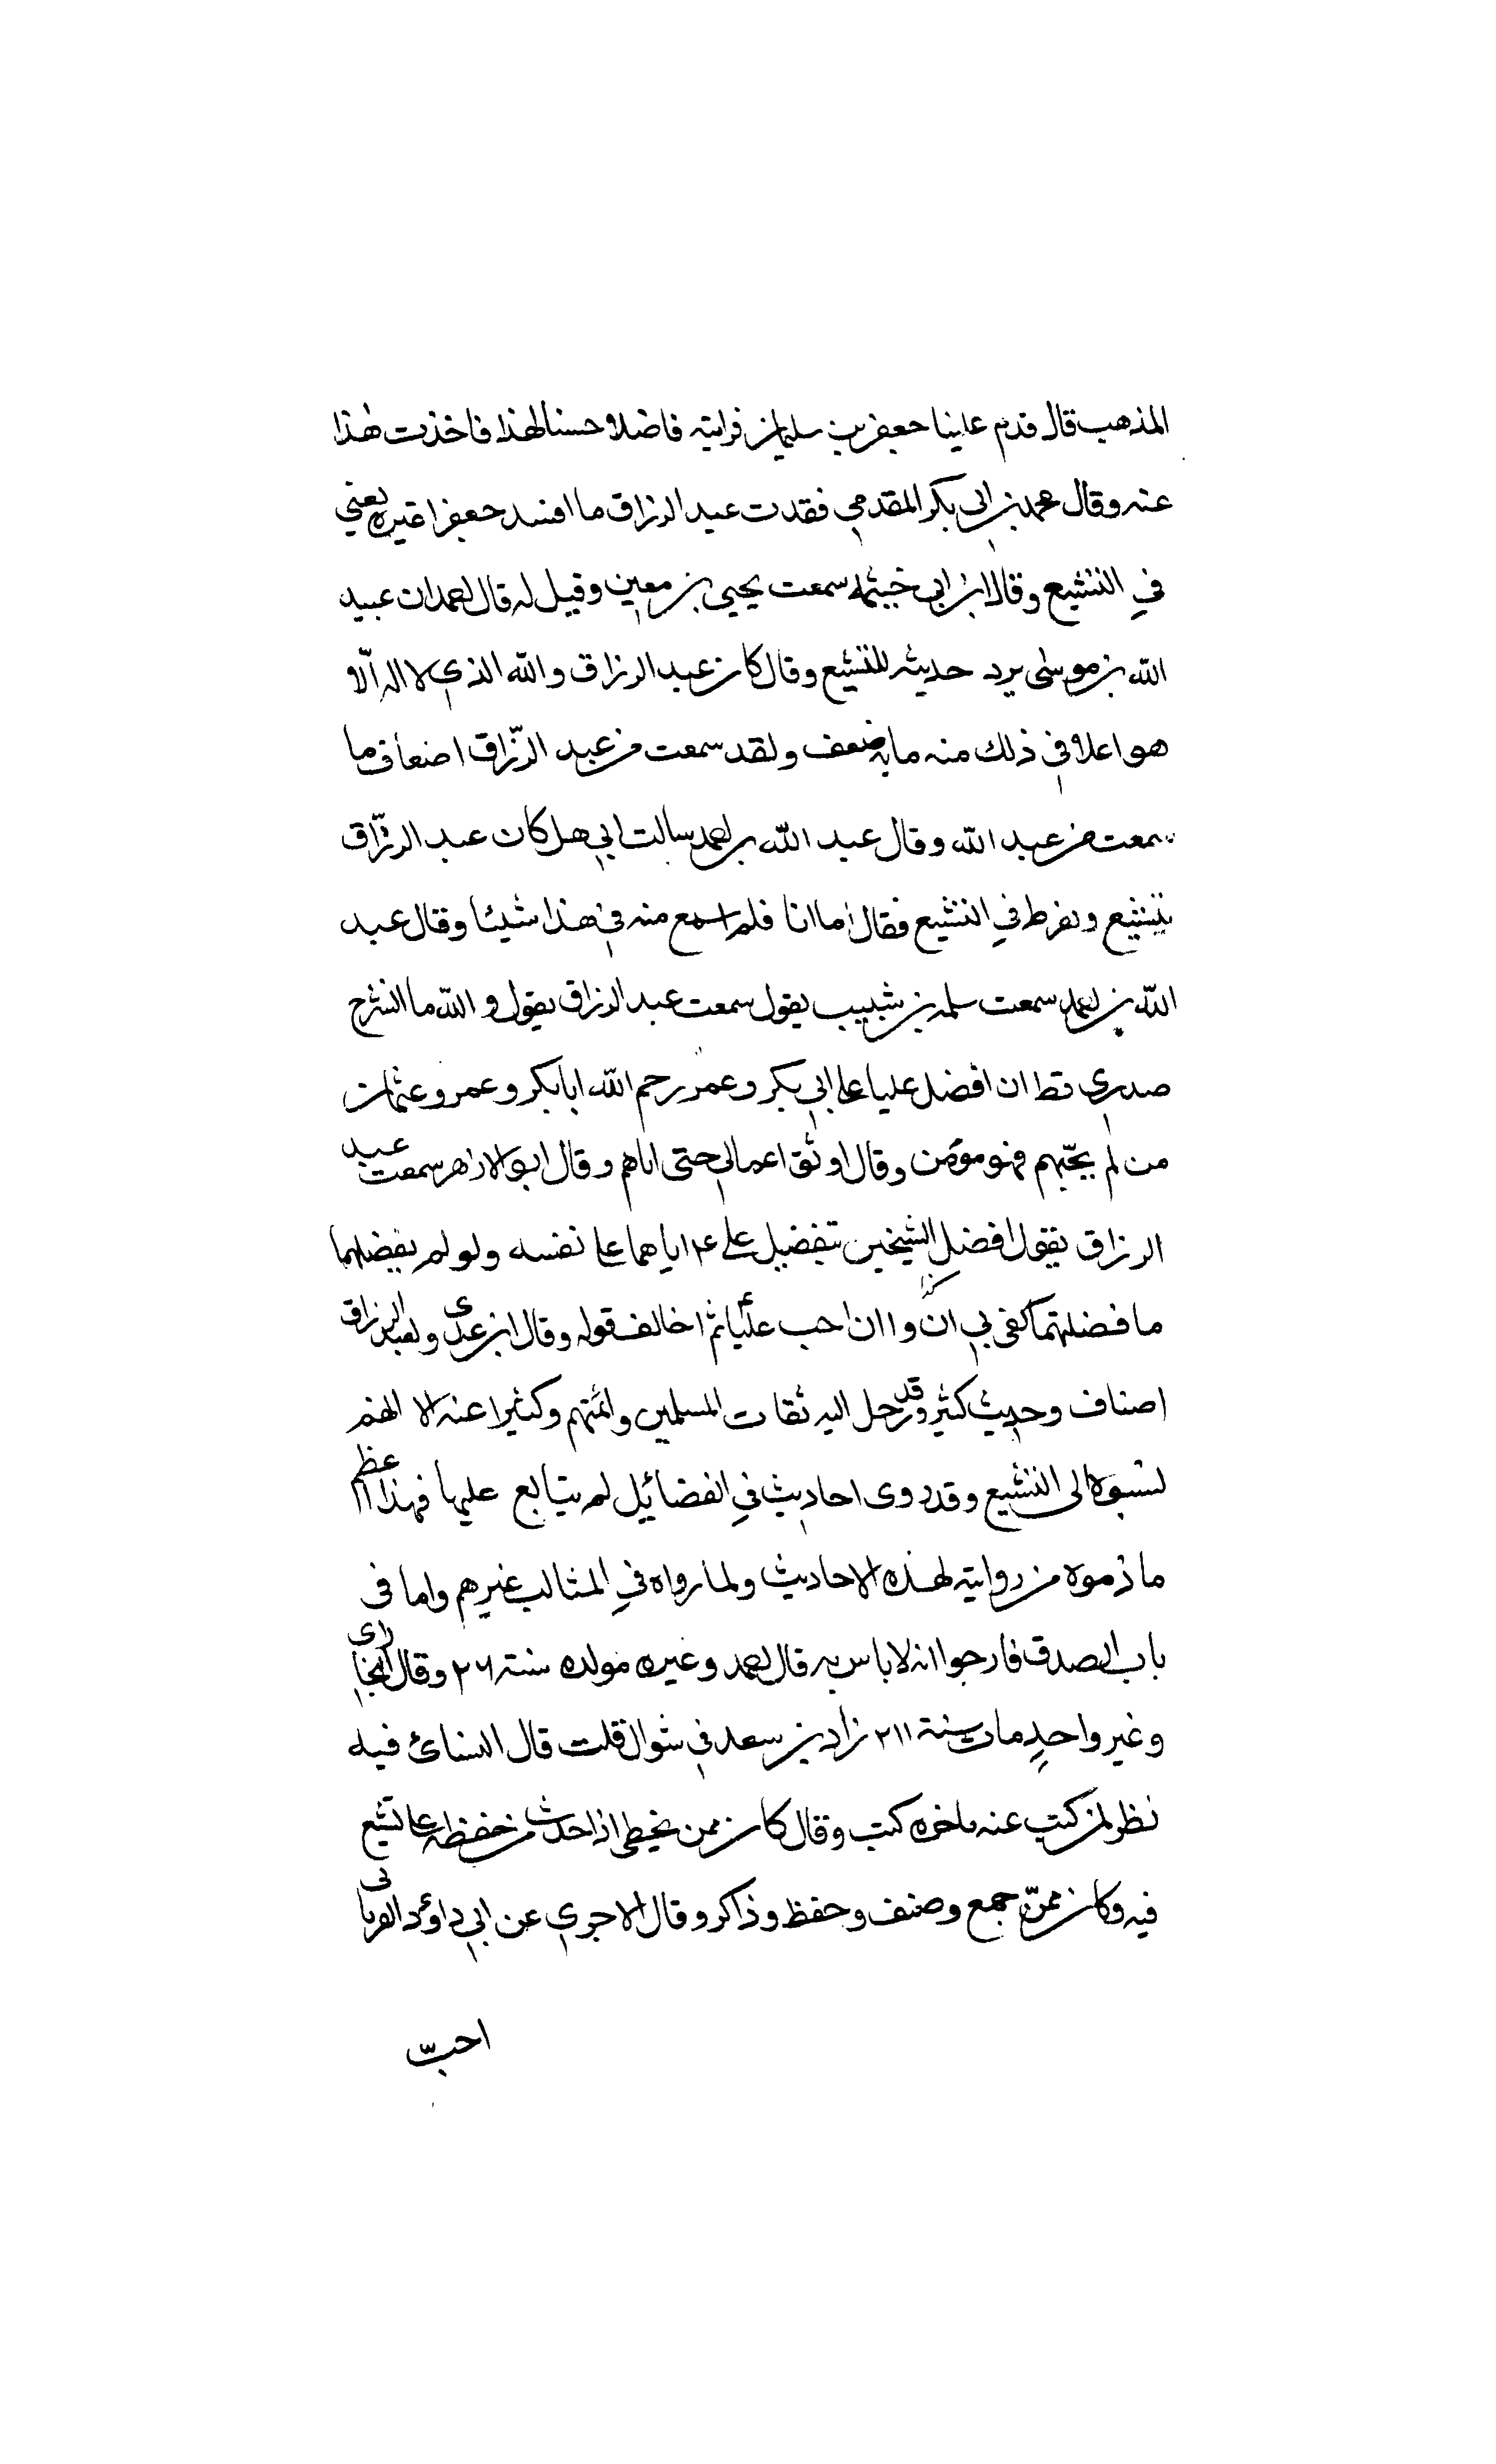 المذهب قال قدم علينا جعفر بن سليمان فرايته فاضلا حسنا لهذا فاخذت هذا
عنه وقال محمد بن ابي بكر المقدمي فقدت عبد الرزاق ما افسد جعفرا غيره يعني
في التشيع وقال ابن ابي خيثمه سمعت يحيى بن معين وقيل له قال احمد ان عبيد
الله بن موسى يرد حديثه للتشيع وقال كان عبد الرزاق والله الذي لا اله الا
هو اعلا في ذلك منه ماية ضعف ولقد سمعت من عبد الرزاق اضعاف ما
سمعت من عبد الله وقال عبد الله بن احمد سالت ابي هل كان عبد الرزاق
يتشيع ويفرط في التشيع فقال اما انا فلم اسمع منه في هذا شيئا وقال عبد
الله بن احمد سمعت سلمه بن شبيب يقول سمعت عبد الرزاق يقول والله ما انشرح
صدري قط ان افضل عليا على ابي بكر وعمر رحم الله ابا بكر وعمر وعثمان
من لم يحبهم فهو مؤمن وقال اوثق اعمالي حبي اياهم وقال ابو الازهر سمعت عبد
الرزاق يقول افضل الشيخين بتفضيل علي اياهما على نفسه ولو لم يفضلهما
ما فضلتهما كفى بي ان وا ان احب عليا ثم اخالف قوله وقال ابن عدي ولعبد الرزاق
اصناف وحديث كثير وقد رحل اليه ثقات المسلمين وائمتهم وكتبوا عنه الا انهم
نسبوه الى التشيع وقد روى احاديث في الفضائل لم يتابع عليها فهذا اعظم
ما ذموه من روايته لهذه الاحاديث ولما رواه في المثالب غيرهم واما فى
باب الصدق فارجوا انه لا باس به قال احمد وغيره مولده سنة ٢٦ وقال البخاري
وغير واحد مات سنة ٢١١ زاد بن سعد في شوال قلت قال النسائ فيه
نظر لمن كتب عنه باخره كتب وقال كان ممن يخطي اذا حدث من حفظه على تشيع
فيه وكان ممن جمع وصنف وحفظ وذاكر وقال الاجري عن ابي داود الفريابى
احبّ